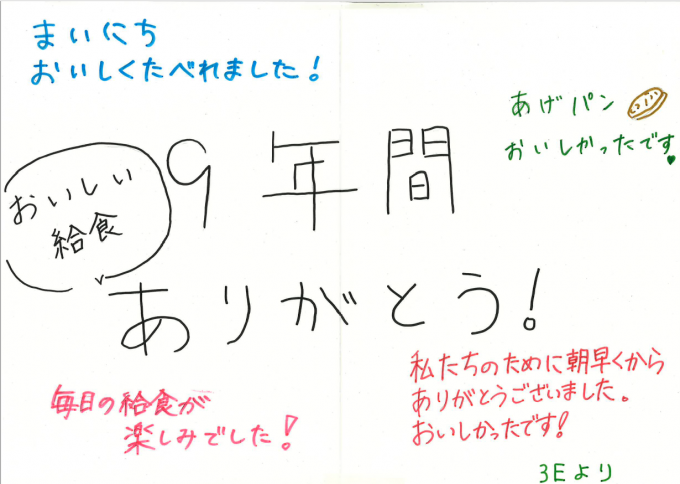 まいにち
おいしくたべれました!
あげパン
おいしかったです♥
おいしい
給食
9年間
ありがとう!
毎日の給食が
楽しみでした!
私たちのために朝早くから
ありがとうございました。
おいしかったです!
3Eより